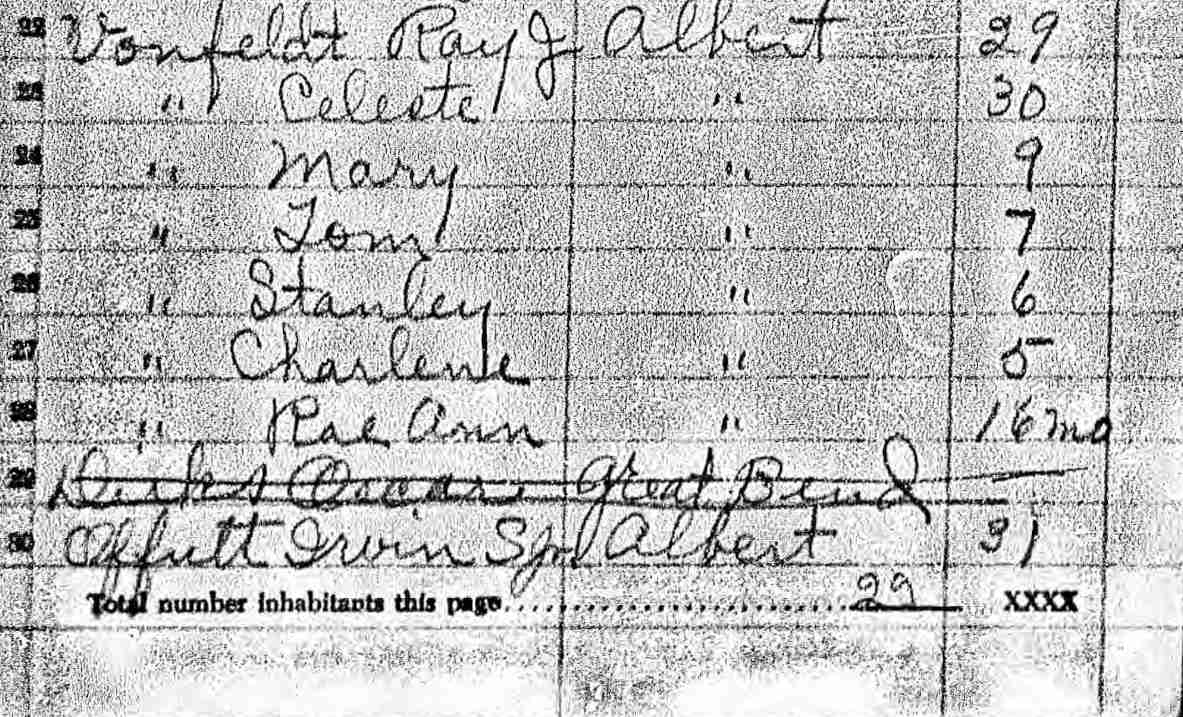 22 Vonfeldt Ray J Albert 29
23 " Celeste " 30
24 " Mary " 9
25 " Tom " 7
26 " Stanley " 6
27 " Charlene " 5
28 " Rae Ann " 16 mo
29 Great Bend —
30 Offutt Irvin S Jr Albert 31
Total number inhabitants this page 29 XXXX